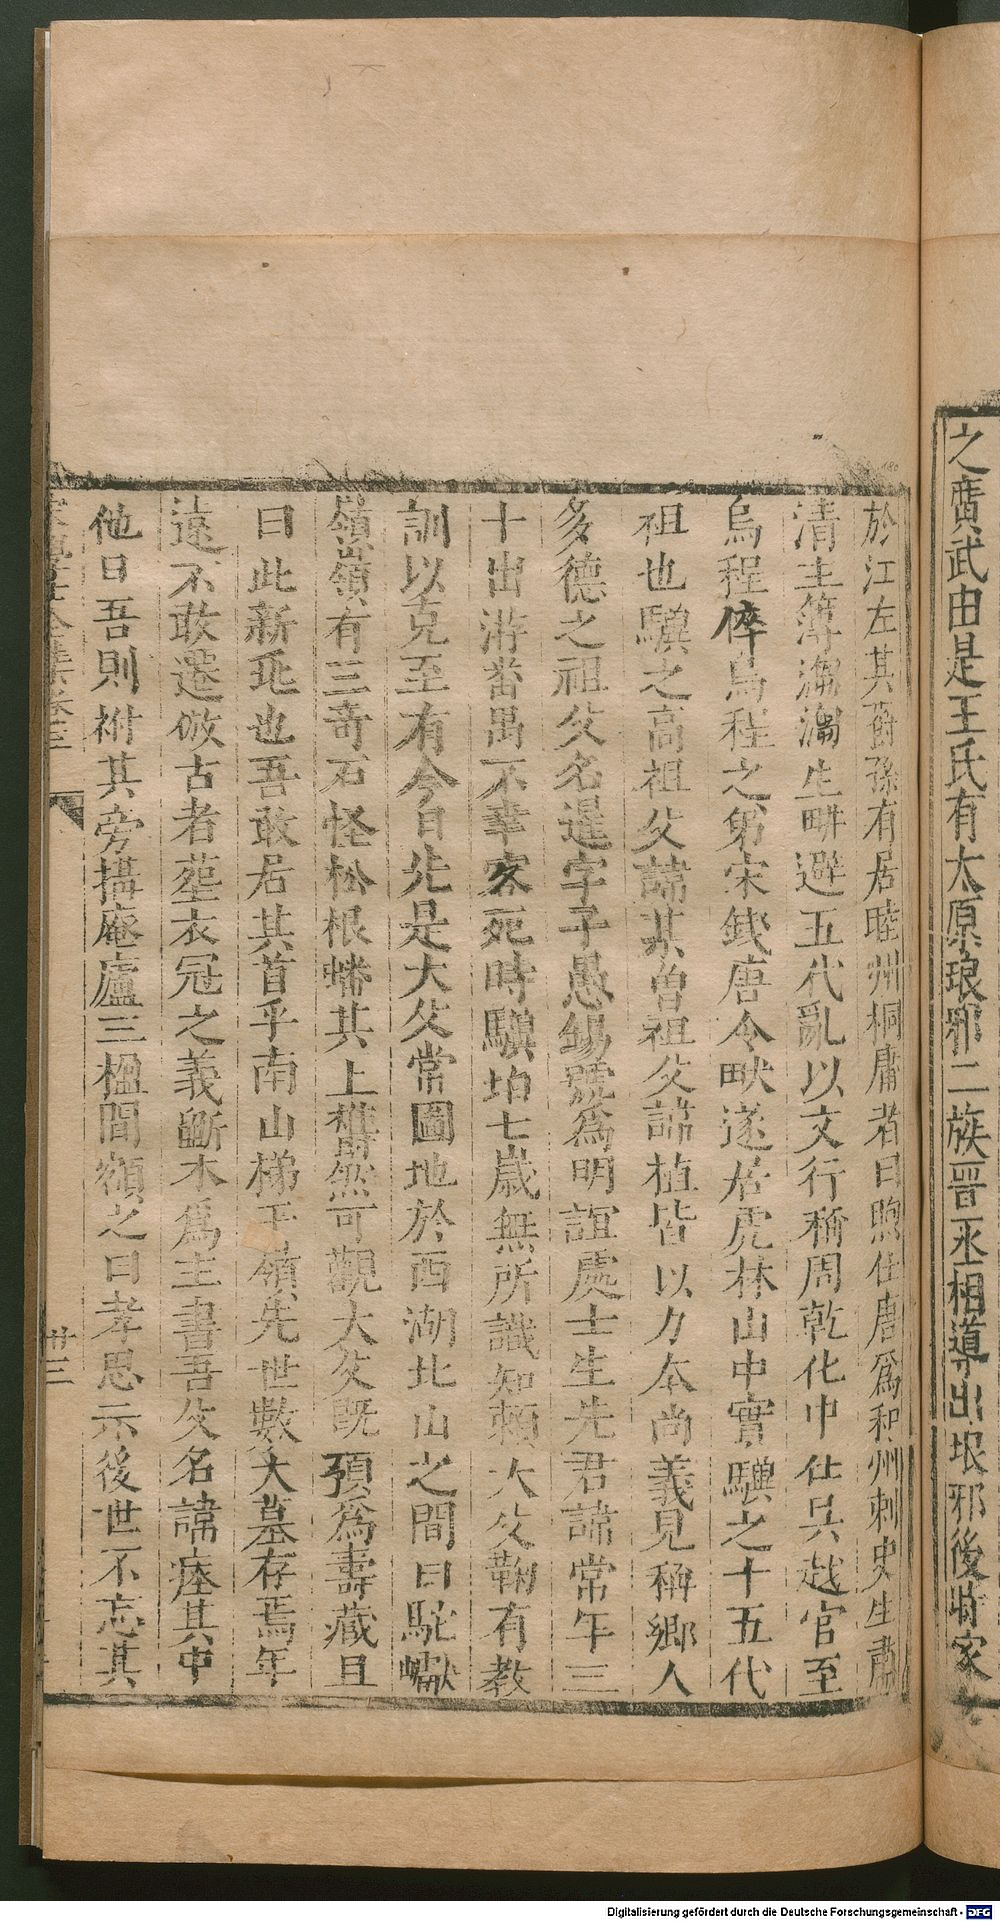 之廣武由是王氏有太原琅邪二族晉丞相導出琅邪後時家
於江左其裔孫有居睦州桐廬者曰煦仕唐爲和州刺史生肅
清主簿瀰瀰生畊避五代亂以文行稱周乾化中仕吳越官至
烏程倅烏程之第宋錢唐令畎遂居虎林山中實驥之十五代
祖也驥之高祖父諱某曾祖父諱植皆以力本尚義見稱鄉人
多德之祖父名暹字子愚錫號爲明誼處士生先君諱常年三
十出游番禺不幸客死時驥始七歲無所識知賴大父鞠有教
訓以克至有今日先是大父常圖地於西湖北山之間曰駝巘
嶺嶺有三奇石怪松根蟠其上樷然可觀大父既預爲壽藏且
曰此新兆也吾敢居其首乎南山梯子嶺先世數大墓存焉年
遠不敢遷倣古者塟衣冠之義斵木爲主書吾父名諱瘞其中
他日吾則祔其旁搆庵廬三楹間額之曰孝思示後世不忘其
卷三
廿三
Digitalisierung gefördert durch die Deutsche Forschungsgemeinschaft - DFG